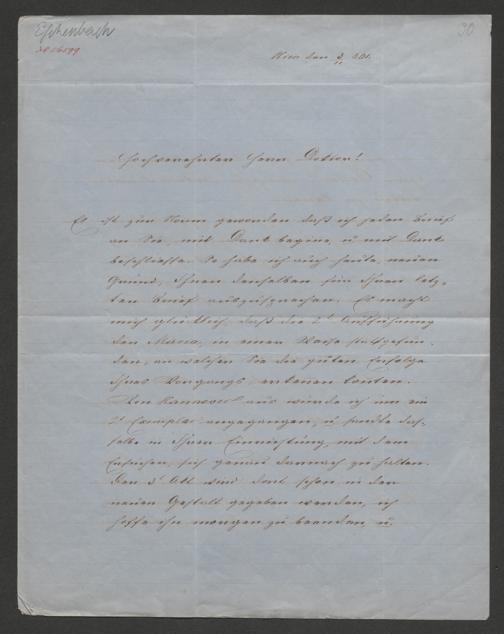 Eschenbach
30
Wien den 3. Okt.
Hochverehrter Herr Doktor!
Es ist zur Norm geworden daß ich jeden Brief
an Sie, mit Dank beginne, u mit Dank
beschließe. So habe ich auch heute, neuen
Grund, Ihnen denselben für Ihren letz-
ten Brief auszusprechen. Es macht
mich glücklich, daß die 2te Aufführung
der Maria, in einer Weise stattgefun-
den, an welcher Sie die guten Erfolge
Ihres Vorgangs, erkennen konnten.
Von Hannover aus wurde ich um ein
2t Exemplar angegangen, u sandte das-
selbe in Ihrer Einrichtung, mit dem
Ersuchen, sich genau darnach zu halten.
Der Akt wird dort schon in der
neuen Gestalt gegeben werden, ich
hoffe ihn morgen zu beenden, u